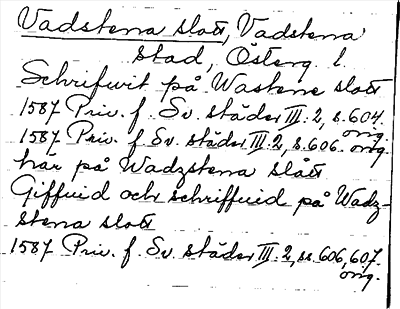 Vadstena slott, Vadstena
stad, Österg. l.
Schrifwit på Wastene slott
1587 Priv. f. Sv. städer III: 2, s. 604.
orig.
1587 Priv. f. Sv. städer III: 2, s. 606. orig.
här på Wadzstena slått
Giffuid och schriffuid på Wadz-
stena slott
1587 Priv. f. Sv. städer III: 2, ss. 606, 607.
orig.